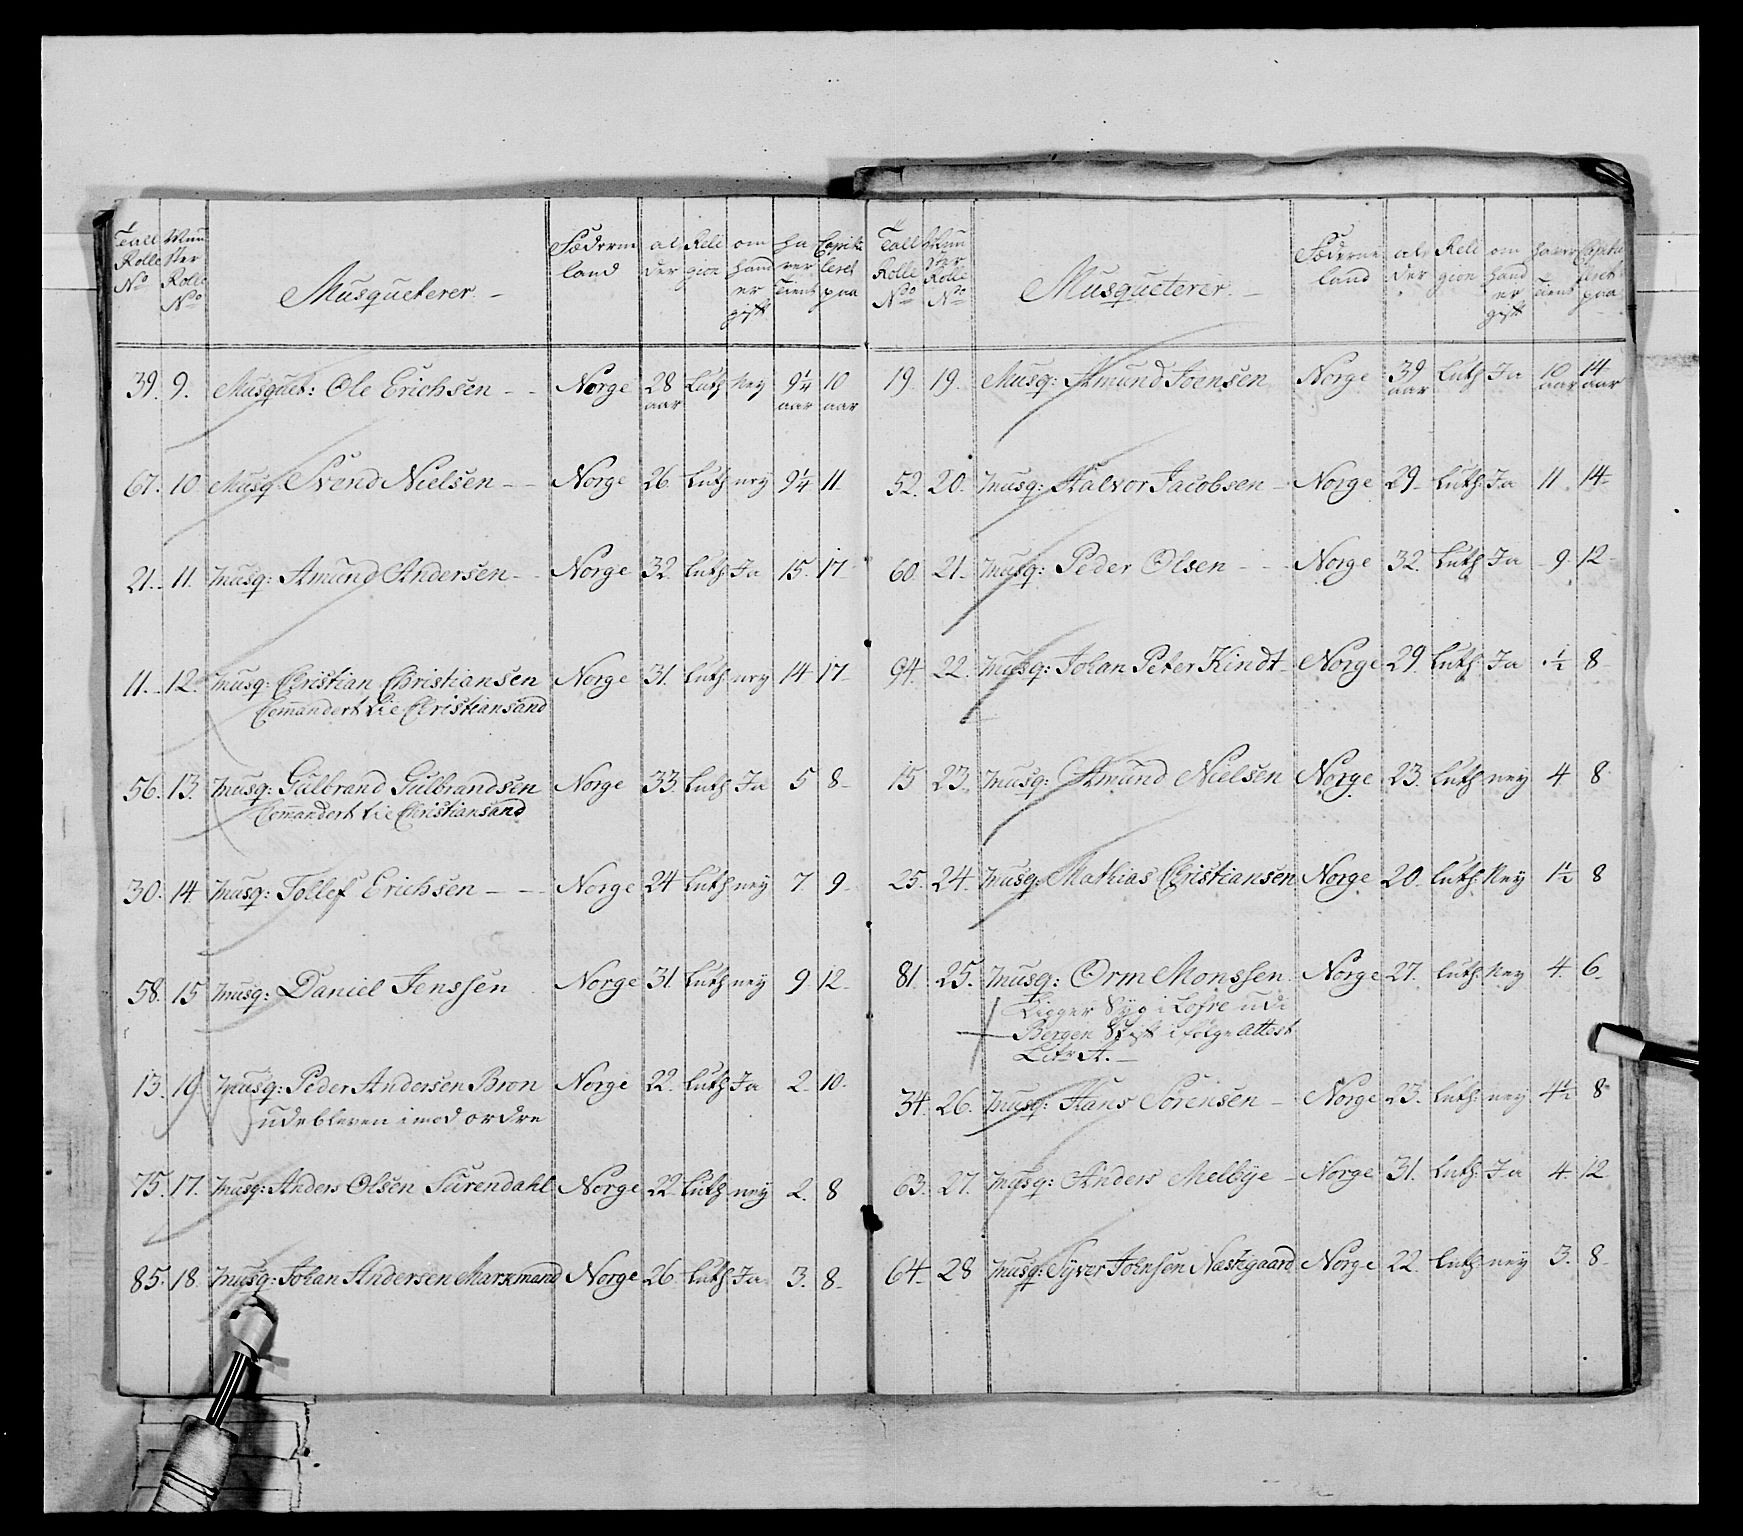 Tall Rolle No | Mun ster Rolle No | Musqueterer | Fæderne land | al der | Reli gion | om hand er gift | ha ver tient | Capitu leret paa
39. | 9. | Musquet: Ole Erichsen | Norge | 28 aar | Luth | Ney | 9¼ aar | 10 aar
67. | 10. | Musq: Svend Nielsen | Norge | 26 | Luth | ney | 9¼ | 11
21. | 11. | Musq: Amund Andersen | Norge | 32 | Luth | Ja | 15. | 17
11. | 12. | Musq: Christian Christiansen | Norge | 31. | Luth | ney | 14 | 17
Commandert til Christiansand
56. | 13. | Musq: Gulbrand Gulbrandsen | Norge | 33. | Luth | Ja | 5 | 8
Commandert til Christiansand
30. | 14 | Musq: Tollef Erichsen | Norge | 24 | Luth | ney | 7. | 9
58. | 15 | Musq: Daniel Jenssen | Norge | 31. | Luth | ney | 9 | 12
13. | 19 | Musq: Peder Andersen Bron | Norge | 22. | Luth | Ja | 2 | 10.
udebleven imod ordre
75. | 17. | Musq: Anders Olsen Surendahl | Norge | 22 | Luth | ney | 2. | 8
85. | 18. | Musq: Johan Andersen Markmand | Norge | 26 | Luth | Ja | 3. | 8
Tall Rolle No | Mun ster Rolle No | Musqueterer | Fæderne land | al der | Reli gion | om hand er gift | haver tient | Capitu leret paa
19. | 19. | Musq: Amund Joensen | Norge | 39 aar | Luth | Ja | 10 aar | 14 aar
52. | 20. | Musq: Halvor Jacobsen | Norge | 29 | Luth: | Ja | 11 | 14
60. | 21. | Musq: Peder Olsen | Norge | 32. | Luth | Ja | 9. | 12
94. | 22. | Musq: Johan Peter Kindt | Norge | 29. | Luth: | Ja | ½ | 8
15 | 23. | Musq: Amund Nielsen | Norge | 23. | Luth | ney | 4 | 8
25. | 24. | Musq: Mathias Christiansen | Norge | 20. | Luth: | Ney | 1½ | 8
81. | 25. | Musq: Orm Monssen | Norge | 27. | Luth: | Ney | 4. | 6
Ligger Syg i udi
Bergen Stift i følge Attest
Litr A.
34. | 26. | Musq: Hans Sörensen | Norge | 23. | Luth: | ney | 4½ | 8
63. | 27. | Musq: Anders Melbye | Norge | 31. | Luth: | Ja | 4. | 12
64. | 28 | Musq: Syver Joensen Næstegaard | Norge | 22. | Luth | ney | 3. | 8